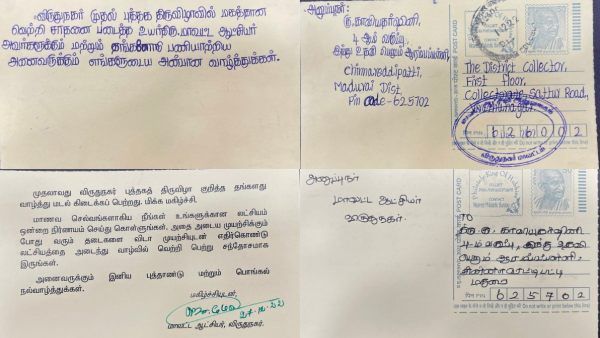 விருதுநகர் முதல் புத்தக திருவிழாவில் மகத்தான
வெற்றி சாதனை படைத்த உயர்திரு. மாவட்ட ஆட்சியர்
அவர்களுக்கும் மற்றும் தங்களோடு பணியாற்றிய
அனைவருக்கும் எங்களுடைய அன்பான வாழ்த்துக்கள்.
அனுப்புநர்:
4 ஆம் வகுப்பு,
இந்து உதவி பெறும்
Chinnareddipatti,
Madurai Dist
Pin code - 625702
POST CARD
The District Collector,
First Floor,
Collectorate, Sattur Road,
Virudhunagar.
626002
விருதுநகர் மாவட்டம்
முதலாவது விருதுநகர் புத்தகத் திருவிழா குறித்த தங்களது
வாழ்த்து மடல் கிடைக்கப் பெற்றது. மிக்க மகிழ்ச்சி.
மாணவ செல்வங்களாகிய நீங்கள் உங்களுக்கான லட்சியம்
ஒன்றை நிர்ணயம் செய்து கொள்ளுங்கள். அதை அடைய முயற்சிக்கும்
போது வரும் தடைகளை விடா முயற்சியுடன் எதிர்கொண்டு
லட்சியத்தை அடைந்து வாழ்வில் வெற்றி பெற்று சந்தோசமாக
இருங்கள்.
அனைவருக்கும் இனிய புத்தாண்டு மற்றும் பொங்கல்
நல்வாழ்த்துக்கள்.
மகிழ்ச்சியுடன்,
மாவட்ட ஆட்சியர், விருதுநகர்.
அனுப்புநர்
மாவட்ட ஆட்சியர்
விருதுநகர்.
POST CARD
TO
4-ம் வகுப்பு, இந்து உதவி
மதுரை
625702